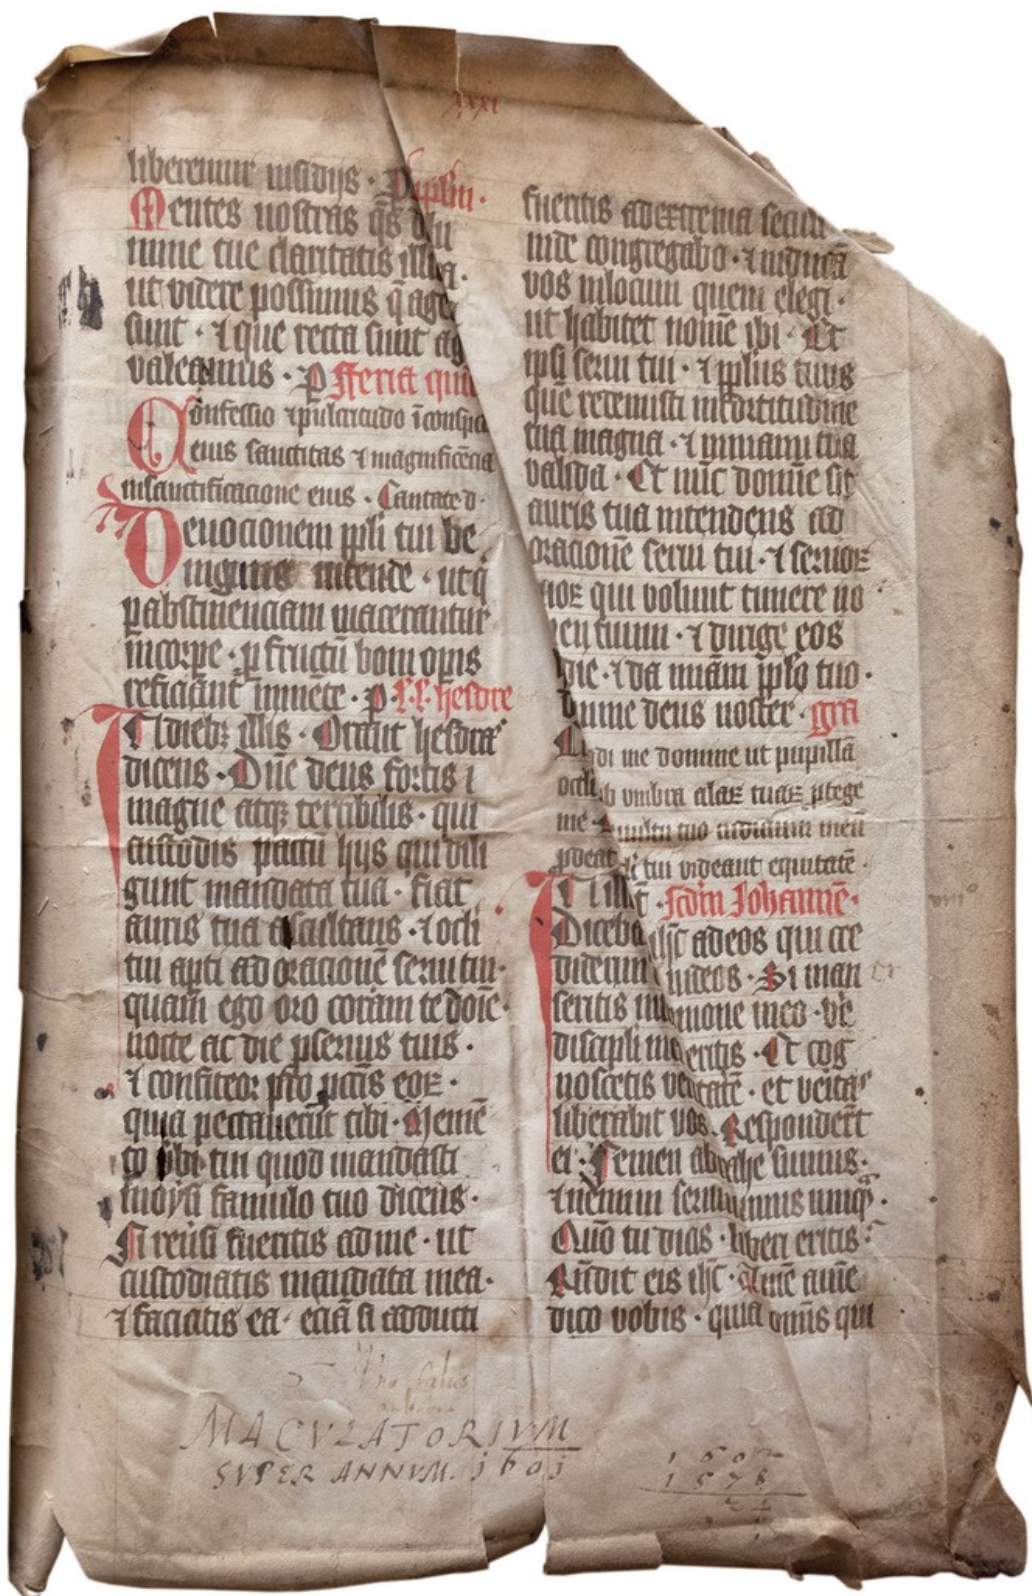 xxxi
liberemur insidijs · Sup plm ·
Mentes nostras qs dne lu
mine tue claritatis illu a ·
ut videre possimus q̄ age
sunt · ⁊ que recta sunt ag
valeamus · P fferia qui
Confessio ⁊pulcritudo ī conspc
eius sanctitas ⁊ magnificēcia
insanctificacione eius · Cantate d ·
Deuocionem ppli tui be
nignus intende · utq̄
pabstinenciam macerantur
incorpe · p fructū boni opis
reficiant̄ in mēte · P · l · l · hesdre
In diebꝫ illis · Orauit hesdra
dicens · Dn̄e deus fortis ⁊
magne atqꝫ terribilis · qui
custodis pactū hijs qui dili
gunt mandata tua · fiat
auris tua ascultans · ⁊ oculi
tui apti ad oracionē serui tui ·
quam ego oro coram te doīe ·
nocte ac die pseruis tuis ·
⁊ confiteor pro pctīs eoꝝ ·
quia peccauerūt tibi · Memē
to ubi tui quod mandasti
moysi famulo tuo dicens ·
Si reusi fueritis ad me · ut
custodiatis mandata mea ·
⁊ faciatis ea · eciā si abducti
fueritis adextrema seculi
inde congregabo · ⁊ induca
vos inlocum quem elegi ·
ut habitet nomē ibi · Et
ipsi serui tui · ⁊ pplus tuus
que redemisti infortitudine
tua magna · ⁊ inmanu tua
valida · Et nūc domīe sit
auris tua intendens ad
oracionē serui tui · ⁊ seruoꝝ
tuoꝝ qui volunt timere no
men tuum · ⁊ dirige eos
die · ⁊ da miām pplo tuo ·
domine deus noster · gra
Custodi me domine ut pupillā
oculi sub vmbra alaꝝ tuaꝝ ptege
me · De vultu tuo iudicium meū
pdeat oculi tui videant equitatē ·
In illo t · Scdm Johannē ·
Diceba ihc ad eos qui cre
diderunt iudeos · Si man
seritis in sermone meo · ve
discipli mei eritis · Et cog
noscetis veritatē · et veritas
liberabit vos · Respondert
ei · Semen abrahe sumus ·
⁊ nemini seruiuimus umq̄ ·
Quō tu dicis · liberi eritis ·
Rn̄dit eis ihc · Amē amē
dico vobis · quia omīs qui
MACVLATORIVM
SVPER ANNVM · 1601
1602
1578
24